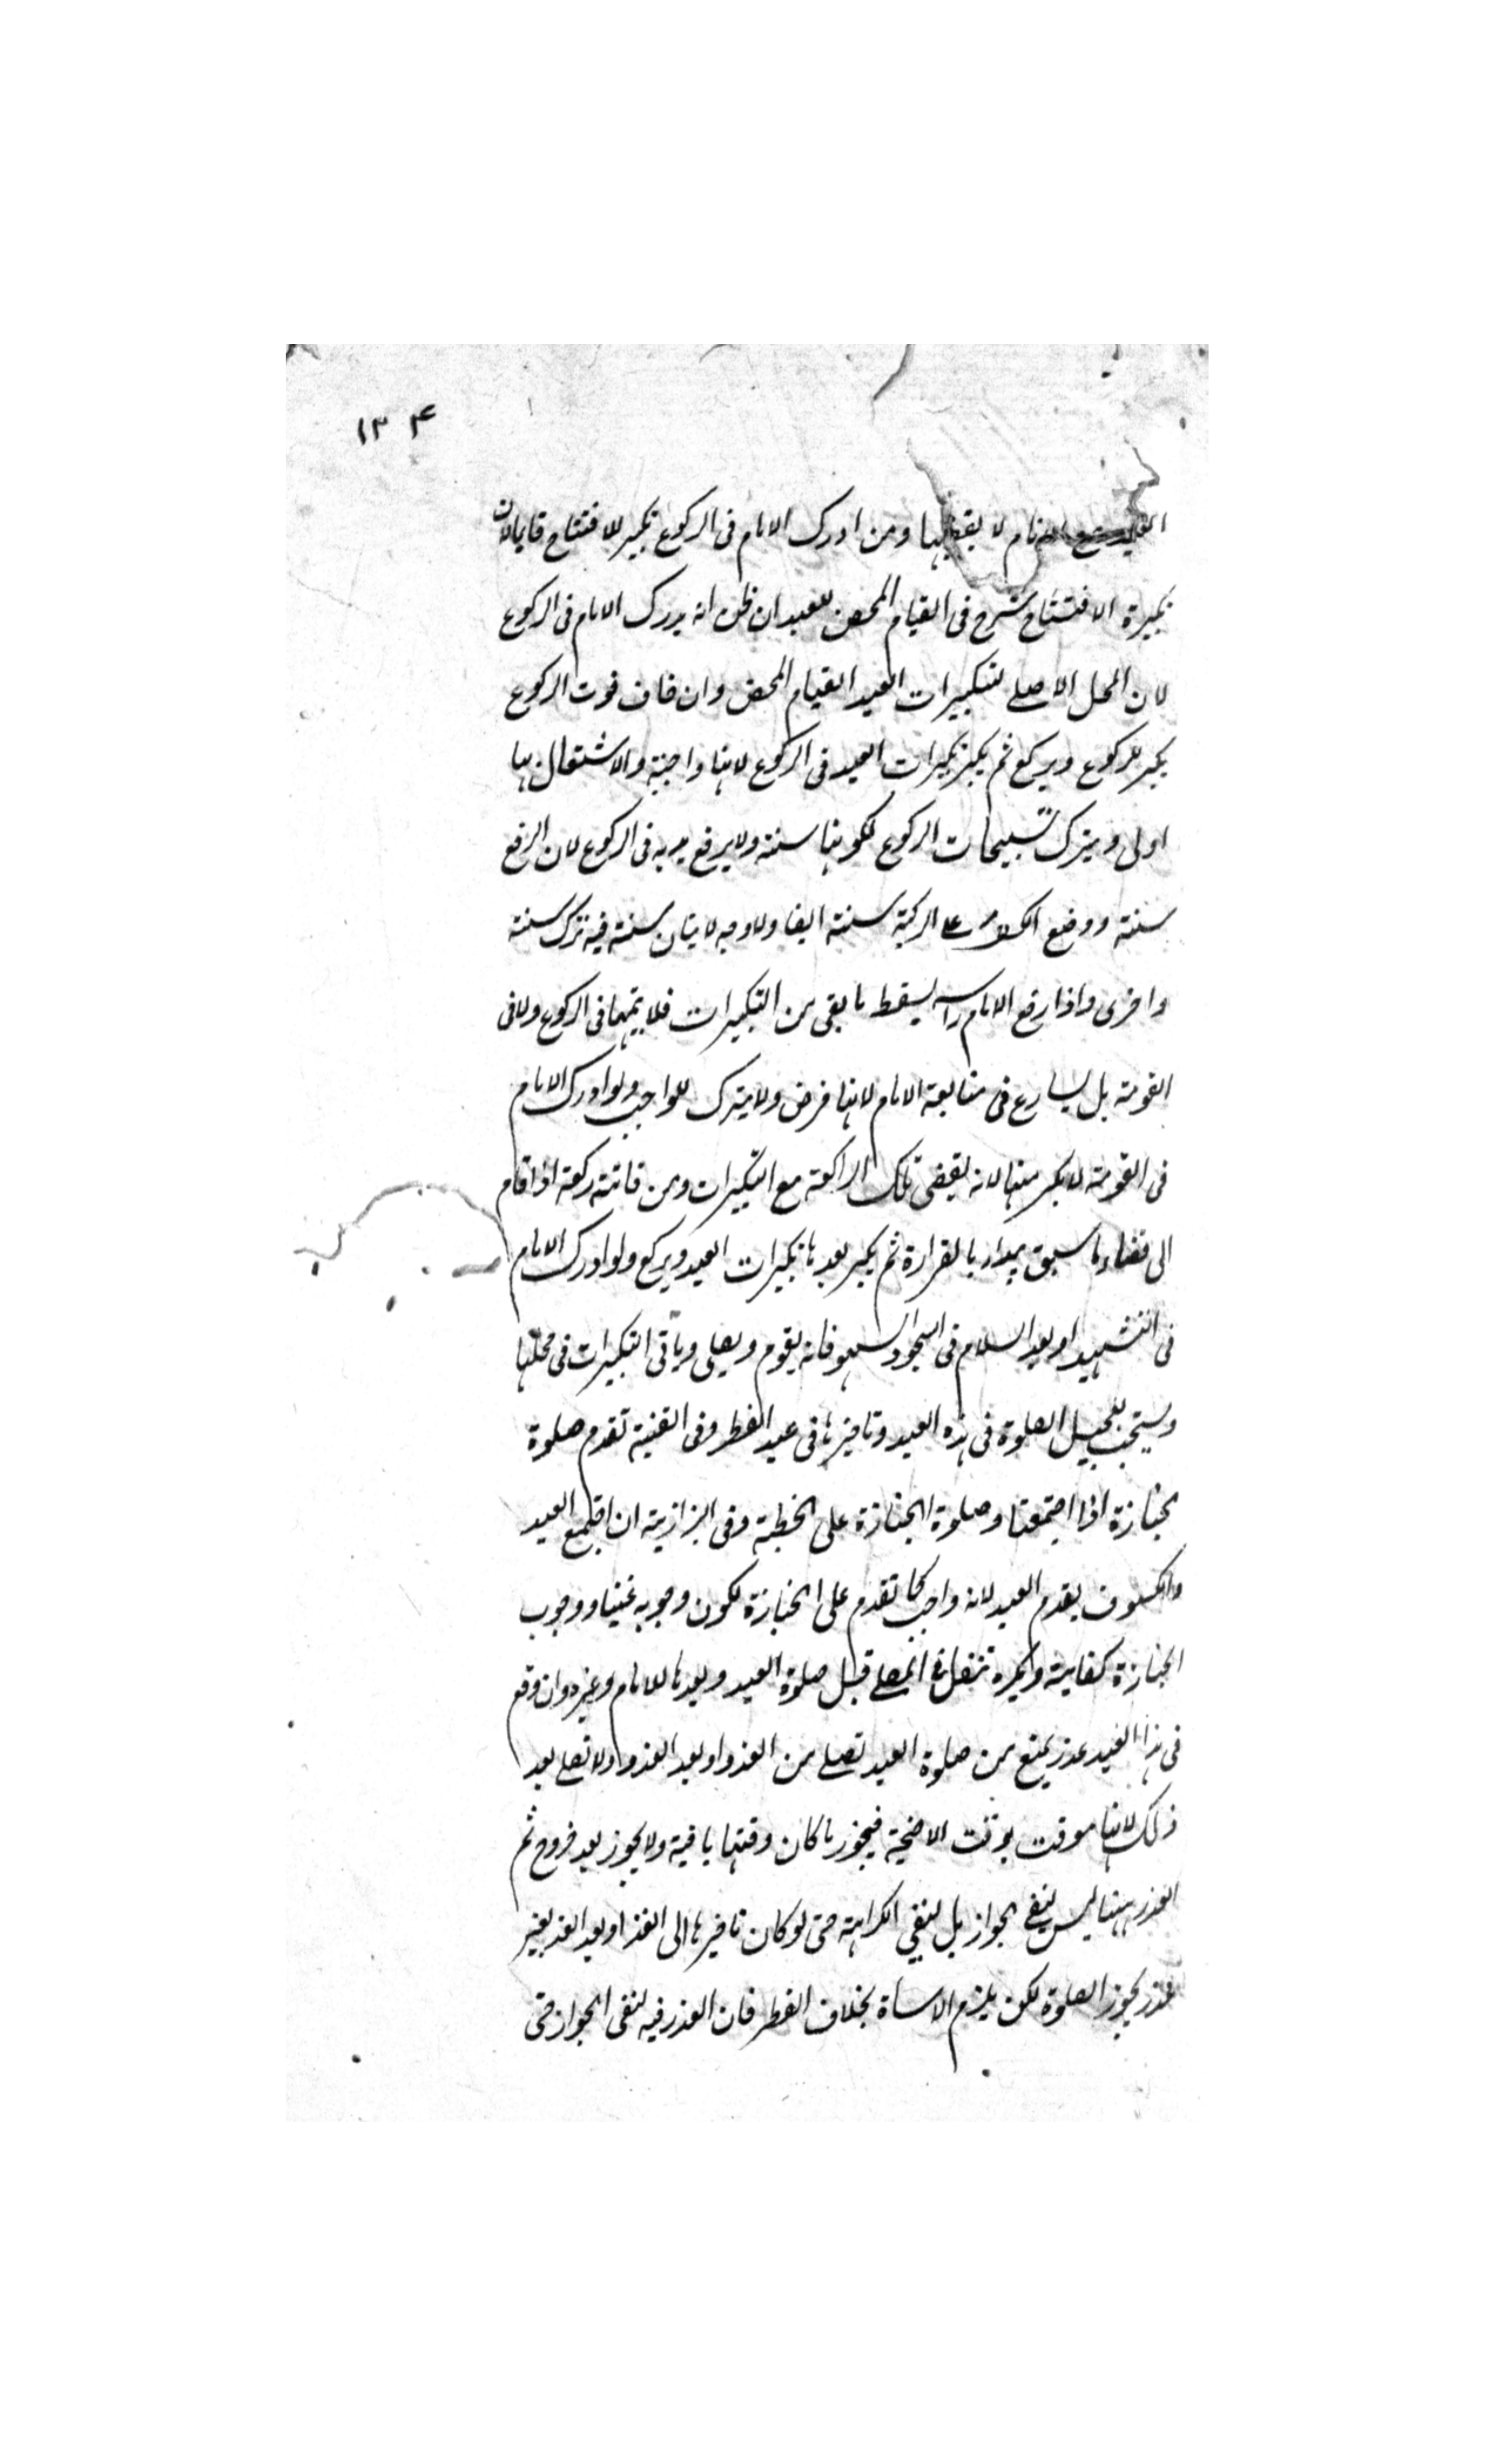 ١٣٤
العيد مع الامام لا يقضيها ومن ادرك الامام فى الركوع يكبر للافتتاح قايما لان
تكبيرة الافتتاح شرع فى القيام المحض للعيد ان ظن انه يدرك الامام فى الركوع
لان المحل الاصلے لتكبيرات العيد القيام المحض وان خاف فوت الركوع
يكبر للركوع ويركع ثم يكبر تكبيرات العيد فى الركوع لانها واجبة والاشتغال بها
اولى ويترك تسبيحات الركوع لكونها سنة ولا يرفع يديه فى الركوع لان الرفع
سنة ووضع الكف علے الركبة سنة ايضا ولا وجه لاتيان سنة فيه ترك سنة
واخرى واذا رفع الامام راسه يسقط ما بقى من التكبيرات فلا يتمها فى الركوع ولا فى
القومة بل يسارع فى متابعة الامام لانها فرض ولا يترك للواجب ولو ادرك الامام
فى القومة لا يكبر منها لانه يقضى تلك الراكعة مع التكبيرات ومن فاتته ركعة اذا قام
الى قضاء ما سبق يبدا بالقراءة ثم يكبر بعدها تكبيرات العيد ويركع ولو ادرك الامام
فى التشهيد او بعد السلام فى السجود السهو فانه يقوم ويصلى وياتى التكبيرات فى محلها
ويستحب تعجيل الصلوة فى هذه العيد وتاخيرها فى عيد الفطر وفى القنية تقدم صلوة
لجنازة اذا اجتمعتا وصلوة الجنازة على الخطبة وفى البزازية ان اجتمع العيد
والكسوف يقدم العيد لانه واجب كما تقدم على الجنازة لكون وجوبه عينا ووجوب
الجنازة كفاية ويكره تنفل فى المصلے قبل صلوة العيد وبعدها للامام وغيره وان وقع
فى هذا العيد عذر يمنع من صلوة العيد تصلے من الغد او بعد الغد ولا تصلے بعد
ذلك لانها موقت بوقت الاضحية فيجوز ما كان وقتها باقية ولا يجوز بعد خروج ثم
العذر ههنا ليس لنفے الجواز بل لنفى الكراهة حتى لو كان تاخيرها الى الغد او بعد الغد بغير
عذر يجوز الصلوة لكن يلزم الاساة بخلاف الفطر فان العذر فيه لنفى الجواز حتى